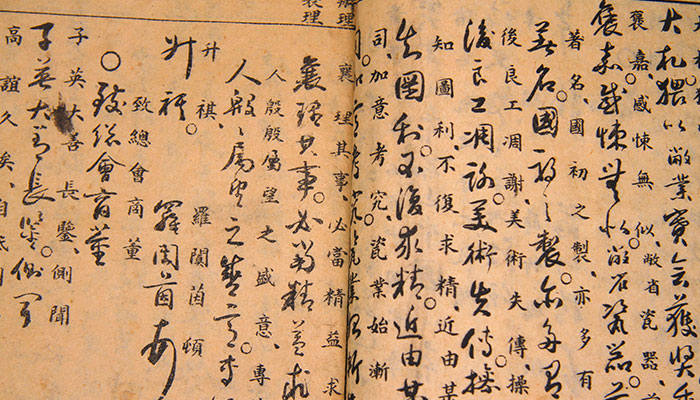 大札猥以敝業賽會獲獎
襃嘉、感悚無似、敝省瓷器、
襃嘉感悚無似敝省瓷器前
著名、國初之製、亦多有
著名國初之製亦多有
後良工凋謝、美術失傳、操
後良工凋謝美術失傳操
知圖利、不復求精、近由某
知圖利不復求精近由某
司、加意考究、瓷業始漸
辦理
襄理
襄理其事、必當精益求
襄理其事。必當精益求
人殷殷屬望之盛意、專
人殷殷屬望之盛意專
升祺。 羅闓茵頓
升祺。 羅闓茵頓
致總會商董
○致總會商董
子英大善長鑒、側聞
子英大善長鑒。側聞
高誼久矣、自